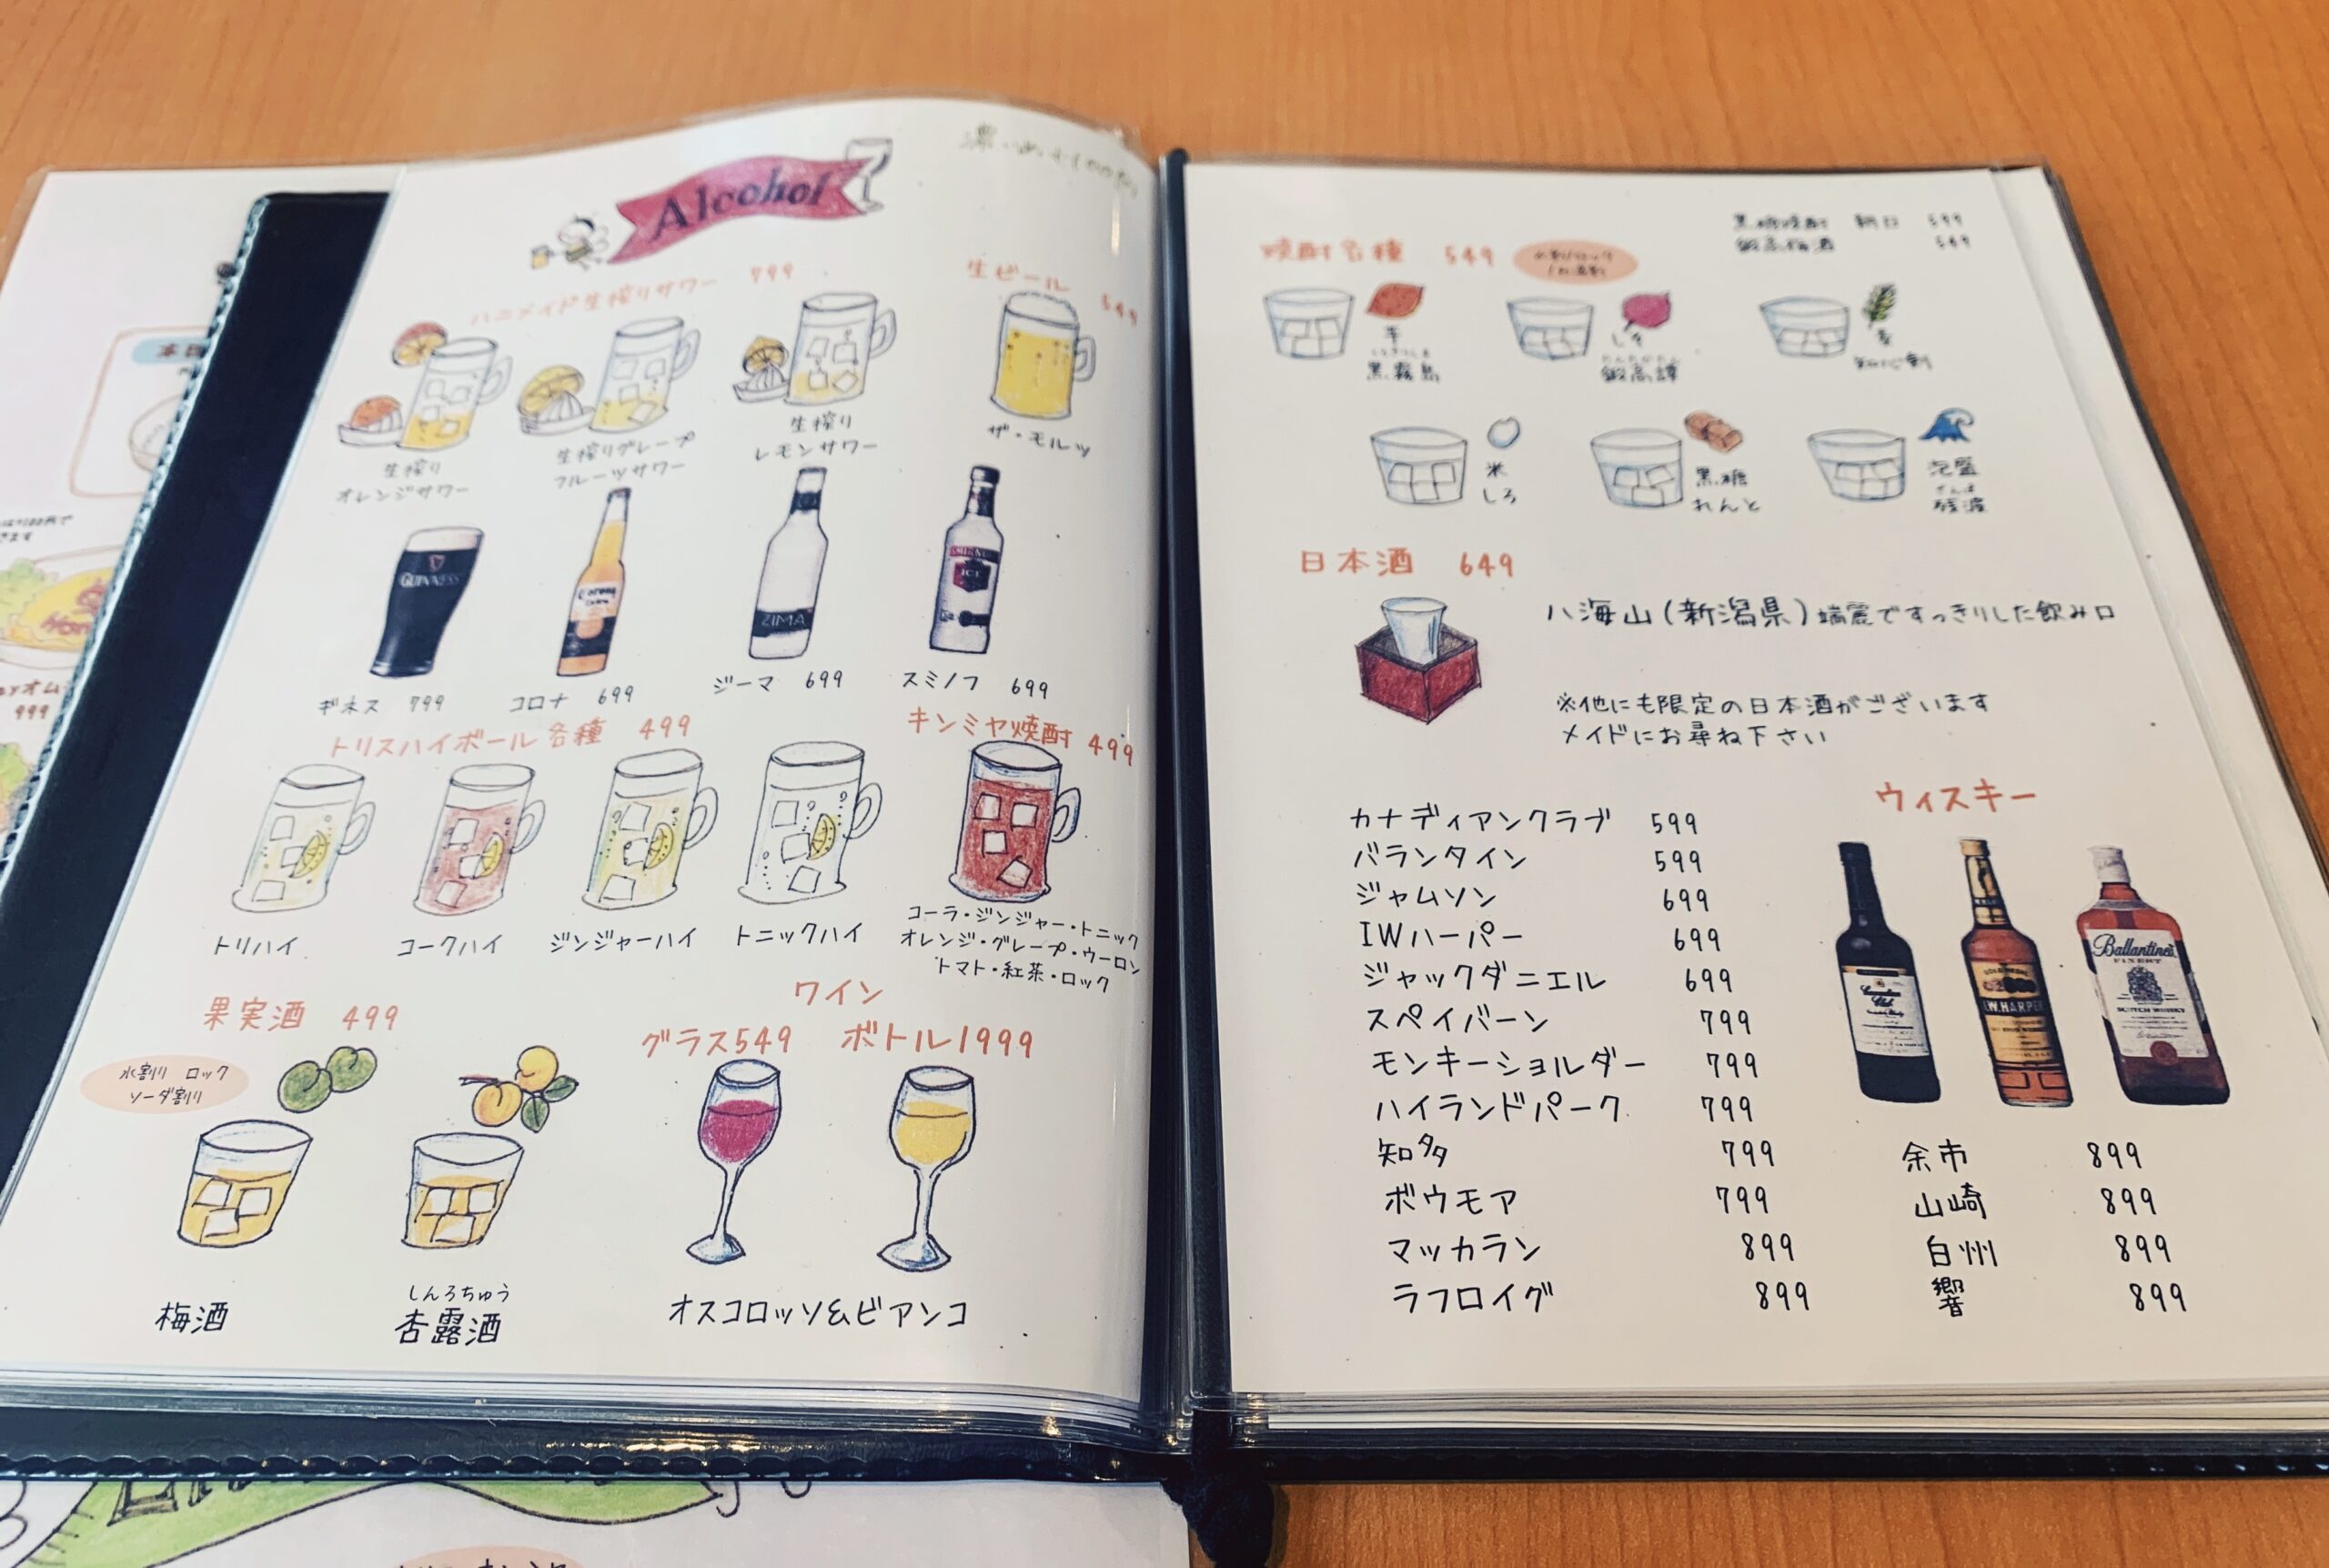 Alcohol
ハニメイド生搾りサワー 799
生ビール 549
生搾り
オレンジサワー
生搾りグレープ
フルーツサワー
生搾り
レモンサワー
ザ・モルツ
GUINNESS
Corona
Extra
ZIMA
SMIRNOFF
ICE
ギネス 799
コロナ 699
ジーマ 699
スミノフ 699
トリスハイボール各種 499
キンミヤ焼酎 499
トリハイ
コークハイ
ジンジャーハイ
トニックハイ
コーラ・ジンジャー・トニック
オレンジ・グレープ・ウーロン
トマト・紅茶・ロック
果実酒 499
水割り ロック
ソーダ割り
梅酒
しんろちゅう
杏露酒
ワイン
グラス549 ボトル1999
オスコロッソ&ビアンコ
黒糖焼酎 朝日 599
鍛高梅酒 549
焼酎各種 549
芋
黒霧島
しそ
たんたかたん
鍛高譚
麦
知心剣
米
しろ
黒糖
れんと
泡盛
ざんぱ
残波
日本酒 649
八海山(新潟県)端麗ですっきりした飲み口
※他にも限定の日本酒がございます
メイドにお尋ね下さい
ウィスキー
カナディアンクラブ 599
バランタイン 599
ジャムソン 699
IWハーパー 699
ジャックダニエル 699
スペイバーン 799
モンキーショルダー 799
ハイランドパーク 799
知多 799
ボウモア 799
マッカラン 899
ラフロイグ 899
余市 899
山崎 899
白州 899
響 899
Canadian
Club
I.W.HARPER
Ballantine's
FINEST
SCOTCH WHISKY
999